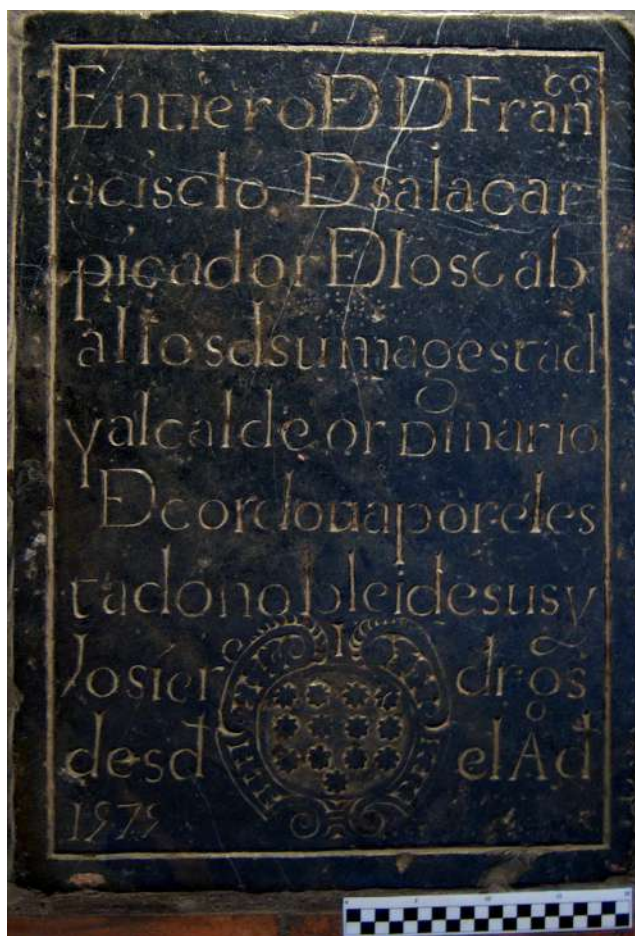 Entiero D D Fran͠co
acisclo D salaçar
picador D los cab
allos d su magestad
y alcalde orDinario
D cordoua por el es
tado noble i de sus y
Josier dr͠os
desd el Ao d
1979